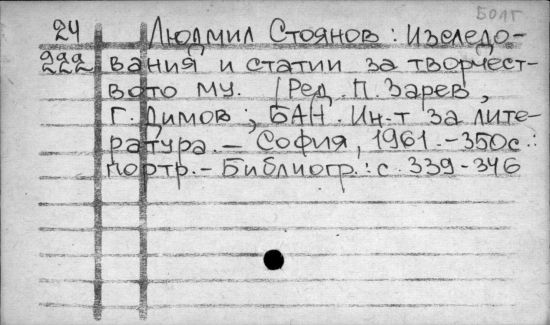 Болг
24 Людмил Стоянов: Изследо-
222 вания и статии за творчест-
вото му. /Ред. П. Зарев,
Г. Димов; БАН. Ин-т за лите-
ратура. - София, 1961. - 350с.:
портр. - Библиогр.: с. 339-346